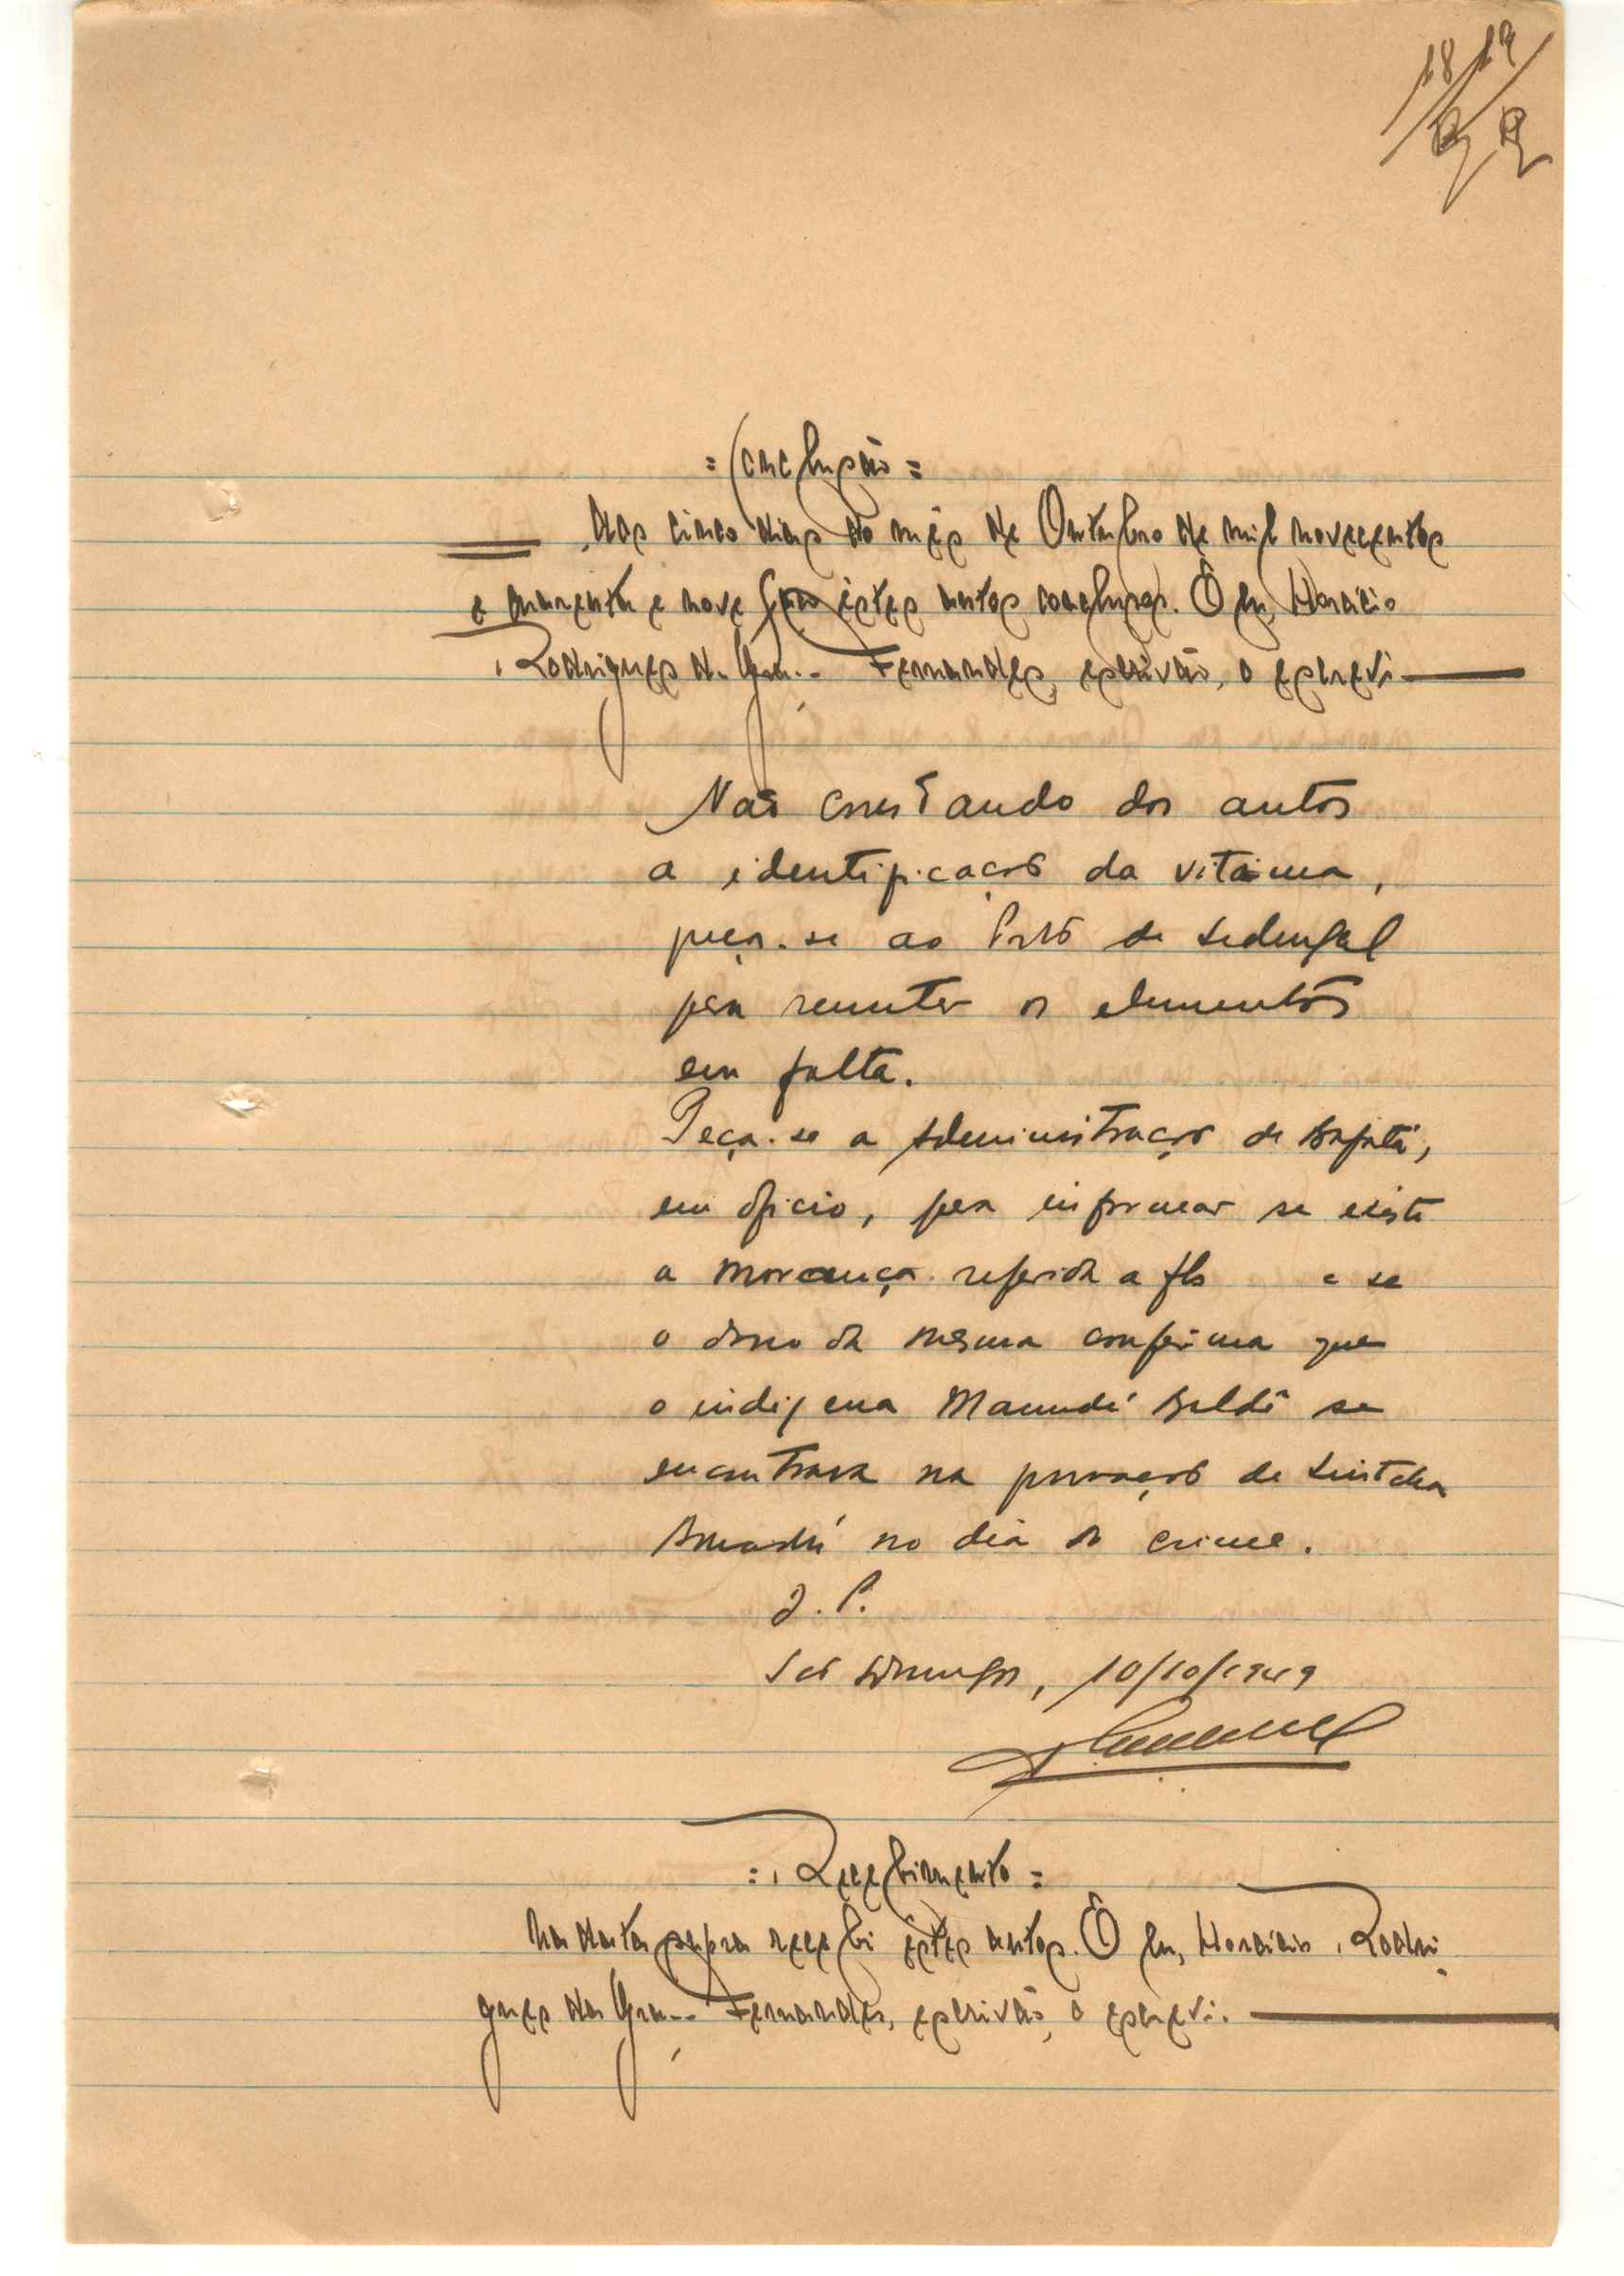 18 19
= Conclusão =
Aos cinco dias do mês de Outubro de mil novecentos
e quarenta e nove faço êstes autos conclusos. E eu, Horácio
Rodrigues da Fernandes, escrivão, o escrevi
Não constando dos autos
a identificação da vitima,
peça-se ao Posto de Sedengal
para remeter os elementos
em falta.
Peça-se a Administração de Bafatá,
em oficio, para informar se existe
a morança referida a fls e se
o dono da mesma confirma que
o indigena Mamudú Baldé se
encontrava na povoação de Sintchã
Amadú no dia do crime.
D. P.
São Domingos, 10/10/1949
= Recebimento =
Na data supra recebi êstes autos. E eu, Horácio Rodri-
gues da Fernandes, escrivão, o escrevi.